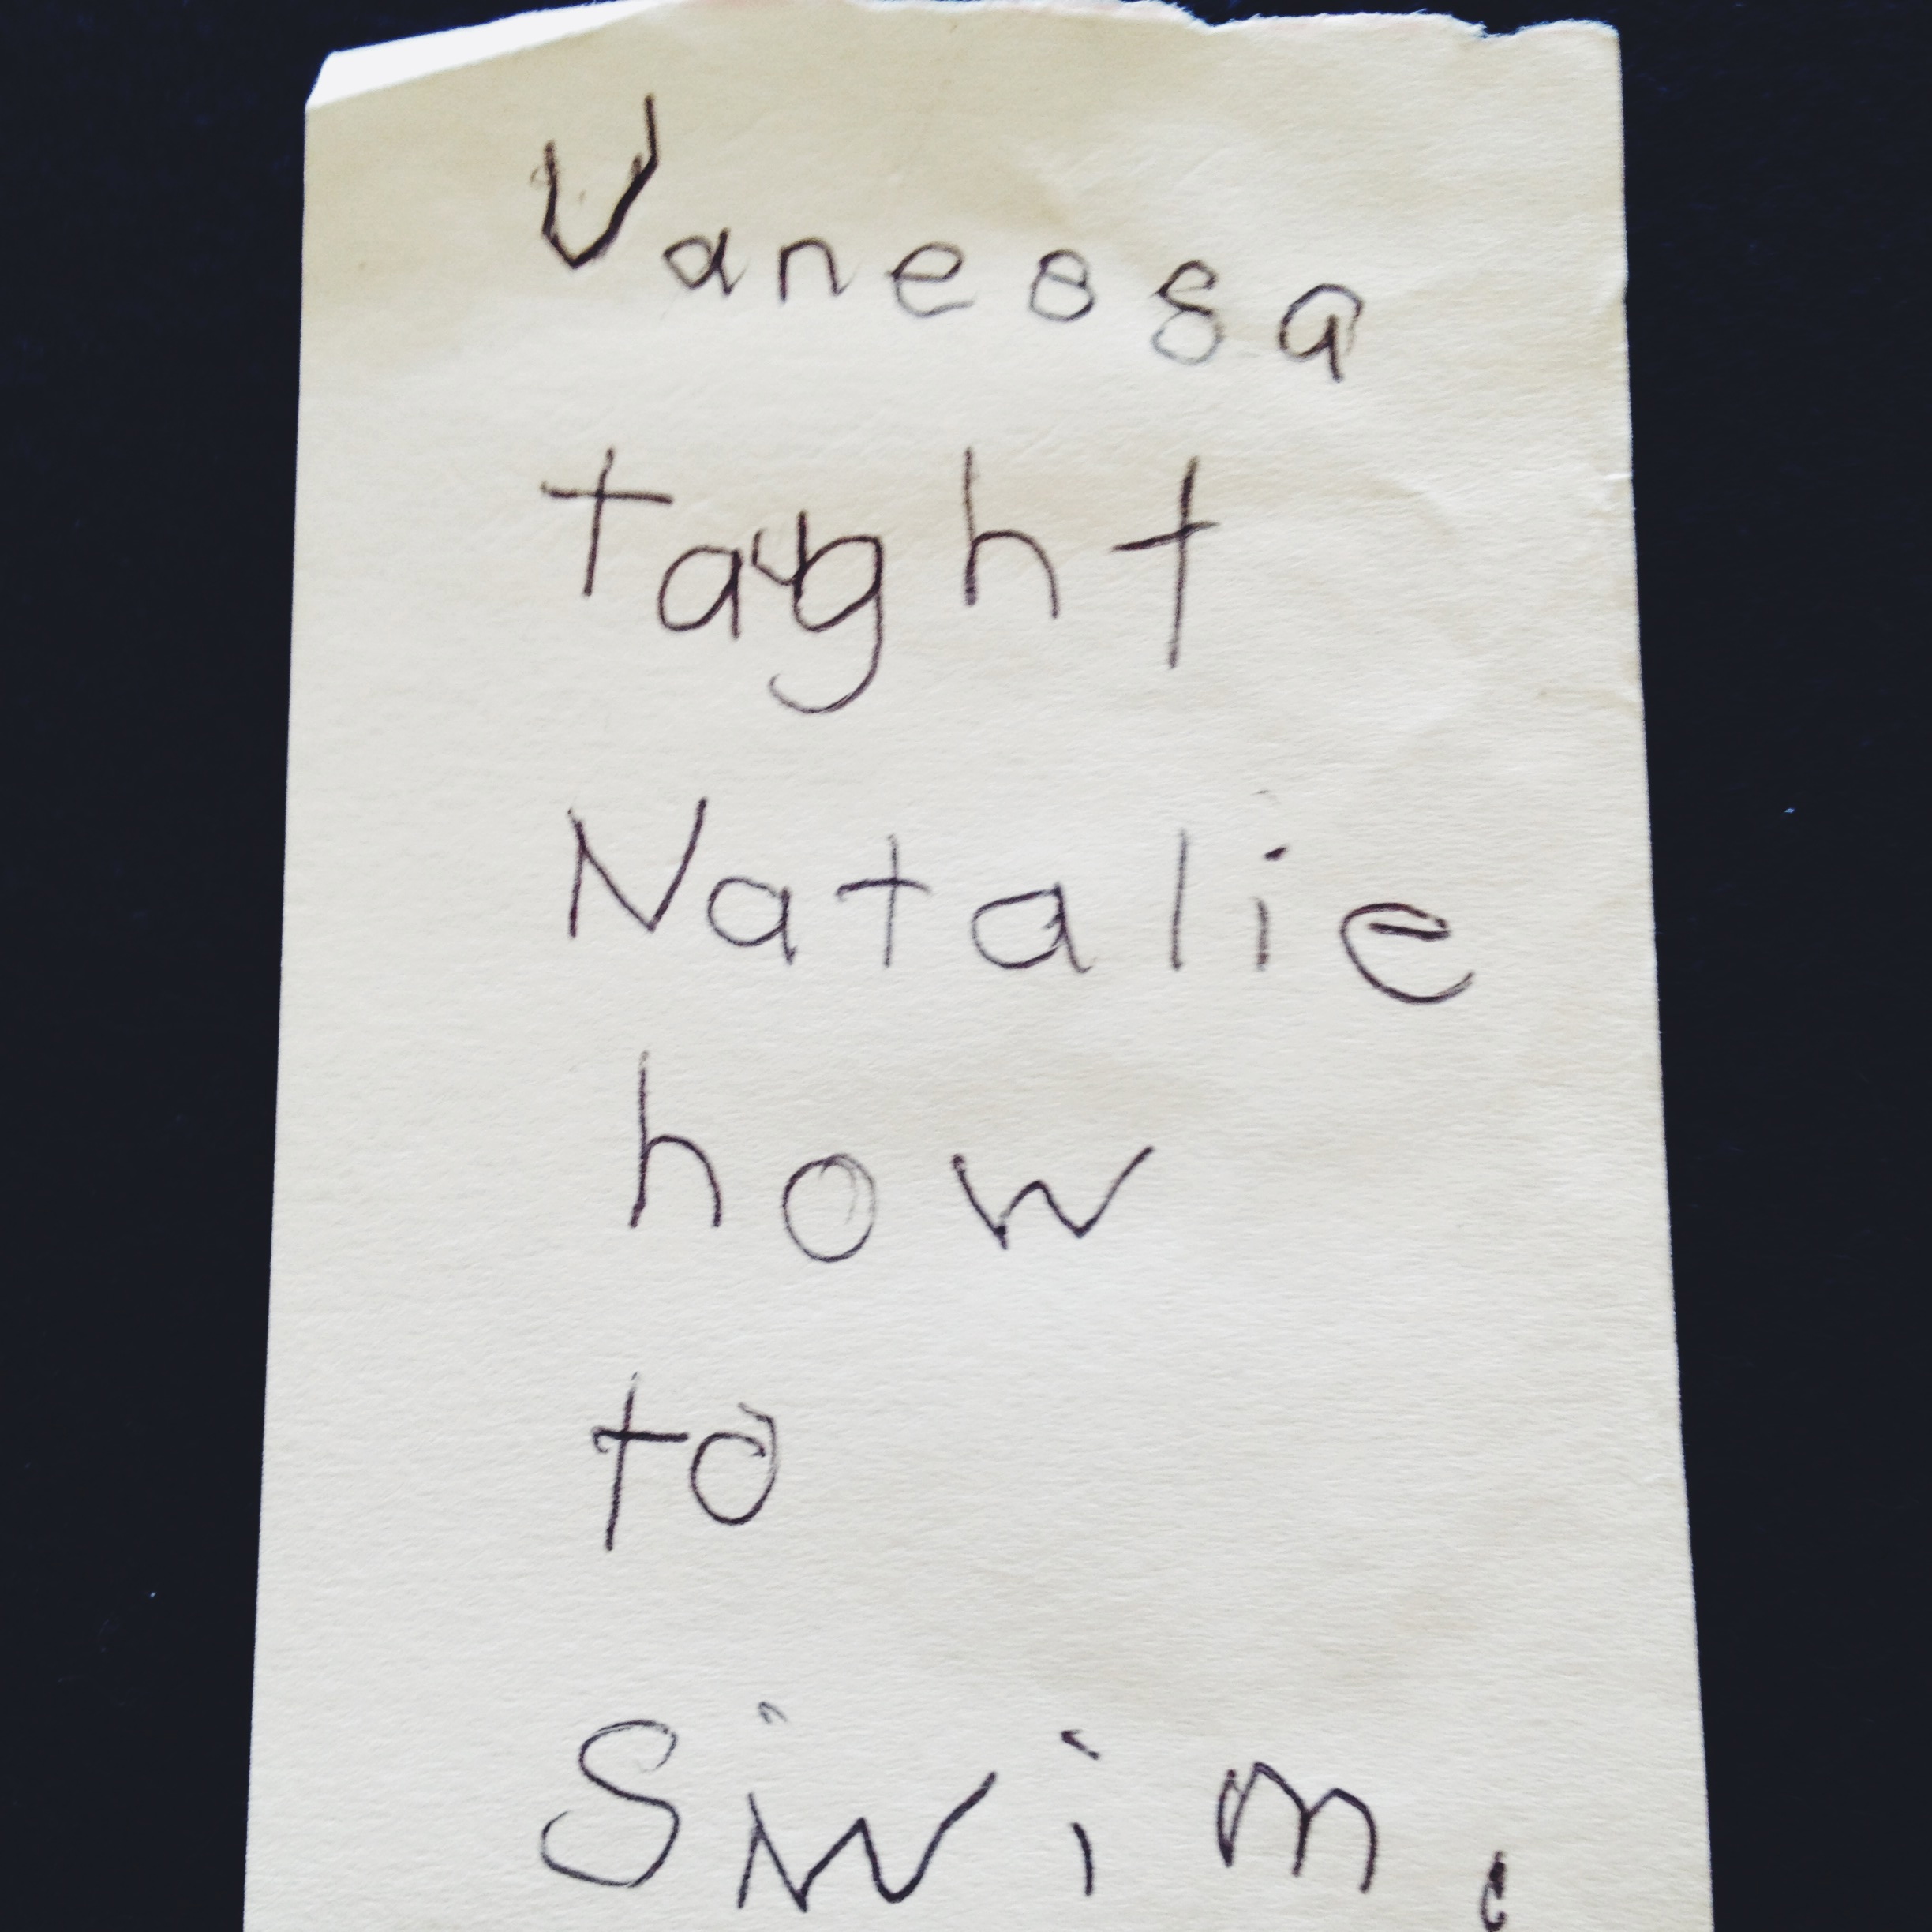 Vanessa
taught
Natalie
how
to
Swim.